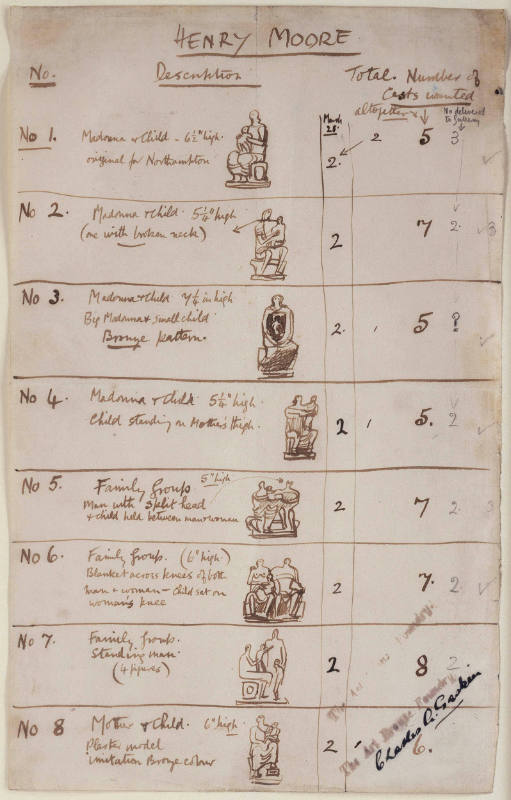 HENRY MOORE
No. Description Total. Number of
Casts wanted
altogether No delivered
to
March
28.
No 1. Madonna & Child - 6½" high.
original for Northampton
2. 2 5 3
No 2. Madonna & Child. 5¼" high
(one with broken neck)
2 7 2. 3
No 3. Madonna & Child 7¼ in high
Big Madonna & small child
Bronze pattern.
2. 5 ?
No 4. Madonna & Child 5¼" high.
Child standing on Mother's thigh.
2 5. 2
No 5. Family Group 5" high
Man with split head
& child held between man & woman
2 7 2. 3
No 6. Family Group. (6" high.)
Blanket across knees of both
man & woman - Child sat on
woman's knee
2 7. 2
No 7. Family Group.
Standing man.
(4 figures)
2 8 2.
No 8 Mother & Child. 6" high.
Plaster model
imitation Bronze colour
2 6.
The Art Foundry.
The Art Bronze Foundry.
Charles